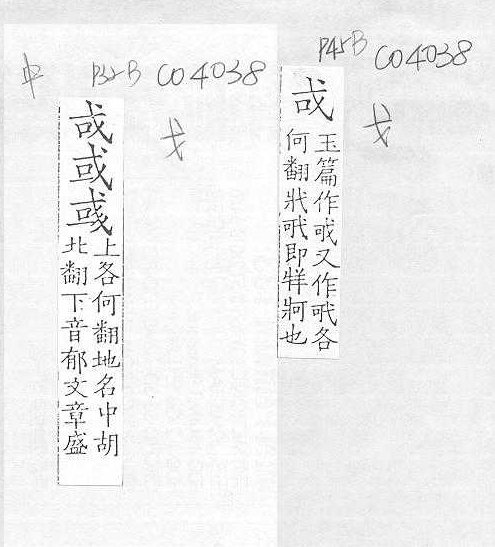 中 P32-B C04038
戈
戓或彧
上各何翻地名中胡
北翻下音郁文章盛
P45-B C04038
戈
戓
玉篇作又作各
何翻即牂牁也